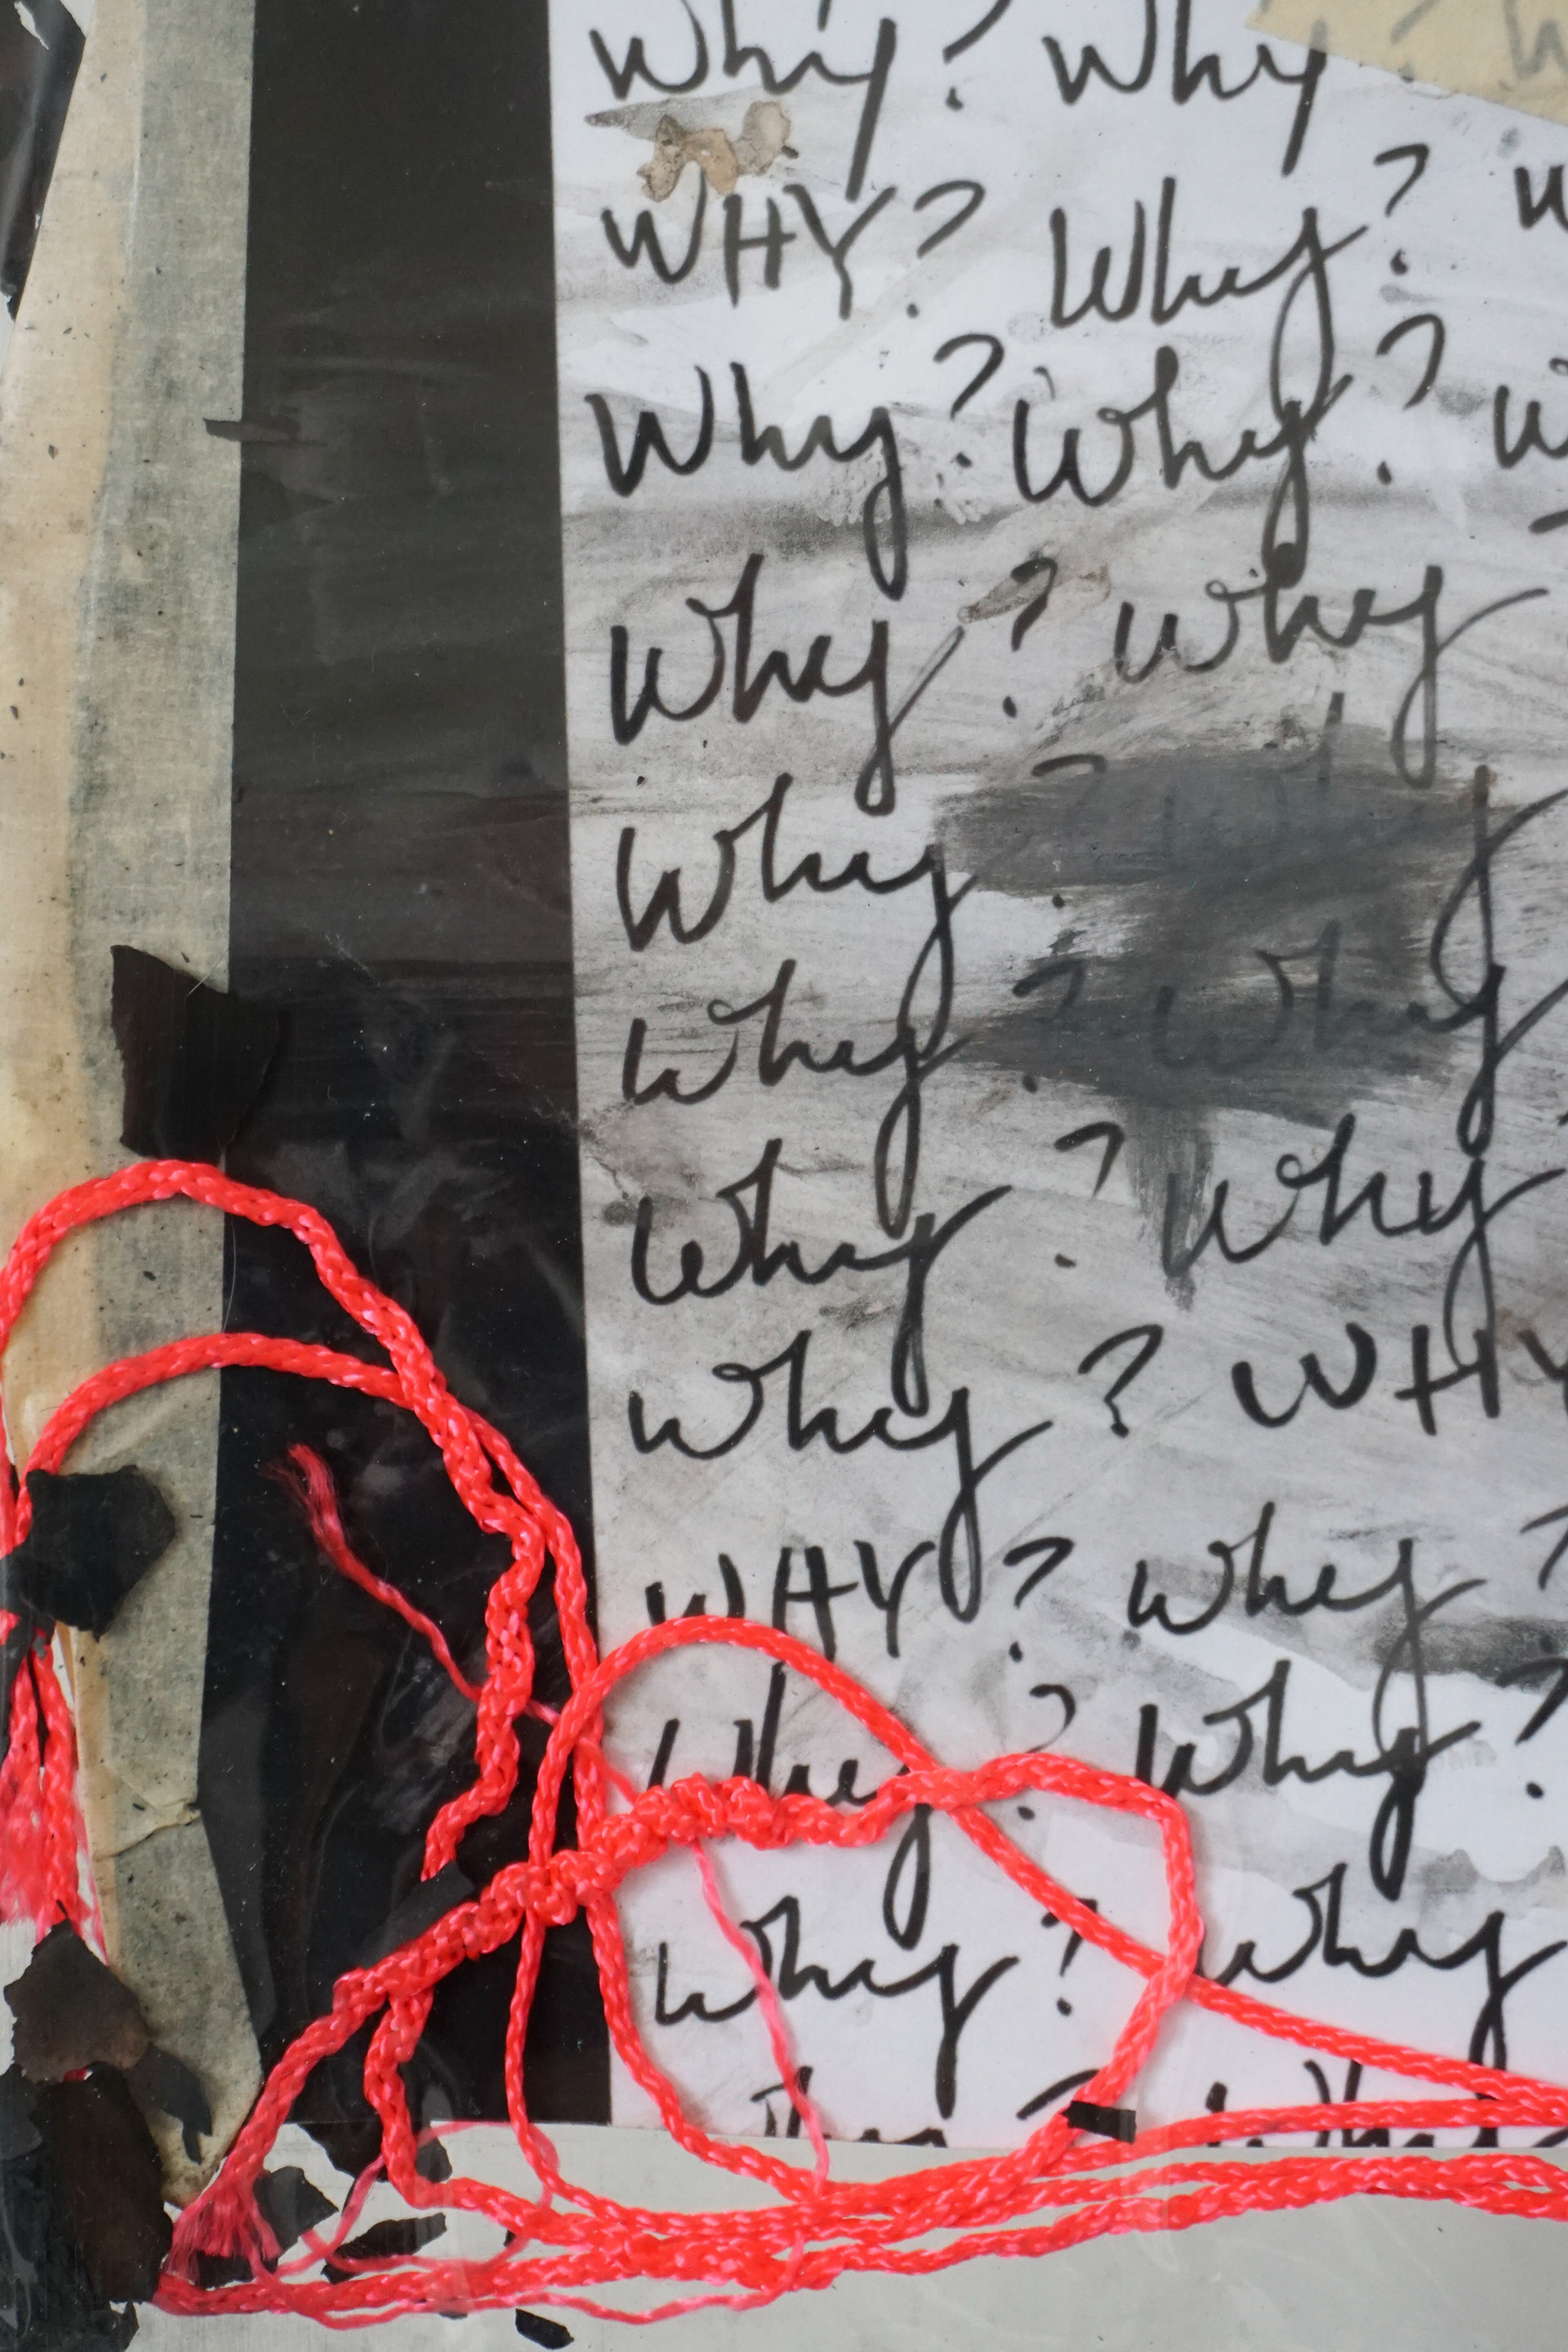 Why? Why
WHY? Why?
Why? Why?
Why? Why
Why? Why
Why? Why
Why? Why
Why? WHY
WHY? Why?
Why? Why?
Why? Why